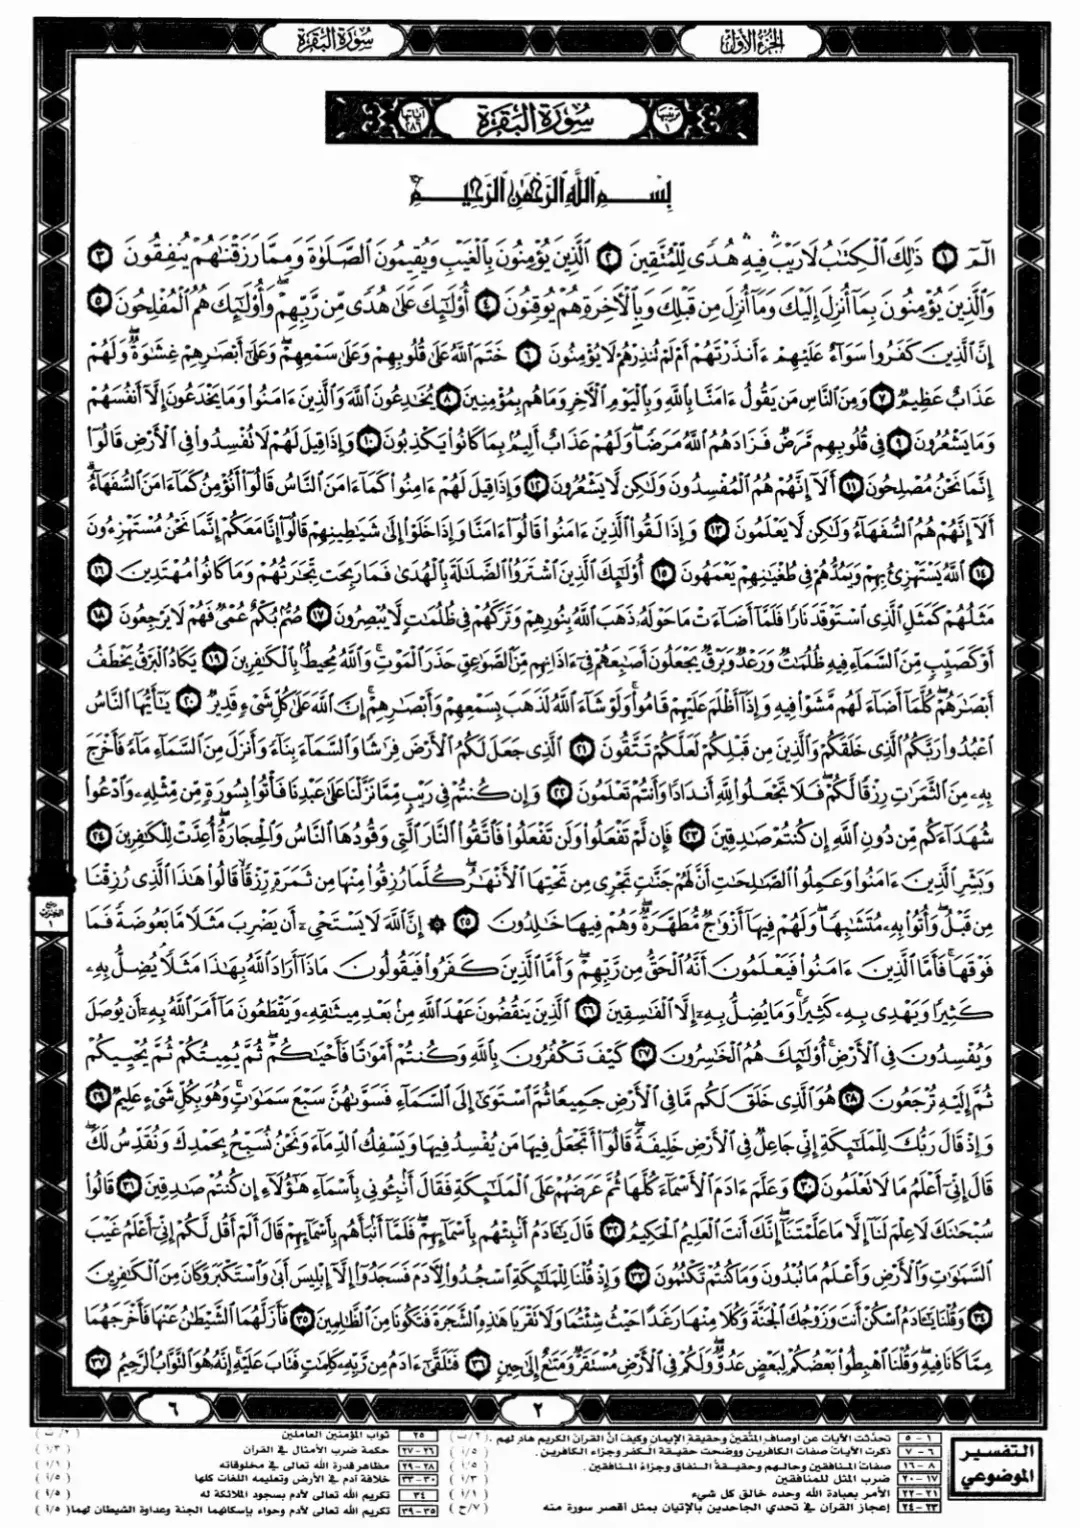 الجزء الأول
سورة البقرة
ترتيبها ٢ سورة البقرة آياتها ٢٨٦
بِسْمِ ٱللَّهِ ٱلرَّحْمَٰنِ ٱلرَّحِيمِ
الٓمٓ ١ ذَٰلِكَ ٱلْكِتَٰبُ لَا رَيْبَ فِيهِ هُدًى لِّلْمُتَّقِينَ ٢ ٱلَّذِينَ يُؤْمِنُونَ بِٱلْغَيْبِ وَيُقِيمُونَ ٱلصَّلَوٰةَ وَمِمَّا رَزَقْنَٰهُمْ يُنفِقُونَ ٣
وَٱلَّذِينَ يُؤْمِنُونَ بِمَآ أُنزِلَ إِلَيْكَ وَمَآ أُنزِلَ مِن قَبْلِكَ وَبِٱلْءَاخِرَةِ هُمْ يُوقِنُونَ ٤ أُو۟لَٰٓئِكَ عَلَىٰ هُدًى مِّن رَّبِّهِمْ وَأُو۟لَٰٓئِكَ هُمُ ٱلْمُفْلِحُونَ ٥
إِنَّ ٱلَّذِينَ كَفَرُوا۟ سَوَآءٌ عَلَيْهِمْ ءَأَنذَرْتَهُمْ أَمْ لَمْ تُنذِرْهُمْ لَا يُؤْمِنُونَ ٦ خَتَمَ ٱللَّهُ عَلَىٰ قُلُوبِهِمْ وَعَلَىٰ سَمْعِهِمْ وَعَلَىٰٓ أَبْصَٰرِهِمْ غِشَٰوَةٌ وَلَهُمْ
عَذَابٌ عَظِيمٌ ٧ وَمِنَ ٱلنَّاسِ مَن يَقُولُ ءَامَنَّا بِٱللَّهِ وَبِٱلْيَوْمِ ٱلْءَاخِرِ وَمَا هُم بِمُؤْمِنِينَ ٨ يُخَٰدِعُونَ ٱللَّهَ وَٱلَّذِينَ ءَامَنُوا۟ وَمَا يَخْدَعُونَ إِلَّآ أَنفُسَهُمْ
وَمَا يَشْعُرُونَ ٩ فِى قُلُوبِهِم مَّرَضٌ فَزَادَهُمُ ٱللَّهُ مَرَضًا وَلَهُمْ عَذَابٌ أَلِيمٌۢ بِمَا كَانُوا۟ يَكْذِبُونَ ١٠ وَإِذَا قِيلَ لَهُمْ لَا تُفْسِدُوا۟ فِى ٱلْأَرْضِ قَالُوٓا۟
إِنَّمَا نَحْنُ مُصْلِحُونَ ١١ أَلَآ إِنَّهُمْ هُمُ ٱلْمُفْسِدُونَ وَلَٰكِن لَّا يَشْعُرُونَ ١٢ وَإِذَا قِيلَ لَهُمْ ءَامِنُوا۟ كَمَآ ءَامَنَ ٱلنَّاسُ قَالُوٓا۟ أَنُؤْمِنُ كَمَآ ءَامَنَ ٱلسُّفَهَآءُ
أَلَآ إِنَّهُمْ هُمُ ٱلسُّفَهَآءُ وَلَٰكِن لَّا يَعْلَمُونَ ١٣ وَإِذَا لَقُوا۟ ٱلَّذِينَ ءَامَنُوا۟ قَالُوٓا۟ ءَامَنَّا وَإِذَا خَلَوْا۟ إِلَىٰ شَيَٰطِينِهِمْ قَالُوٓا۟ إِنَّا مَعَكُمْ إِنَّمَا نَحْنُ مُسْتَهْزِءُونَ
١٤ ٱللَّهُ يَسْتَهْزِئُ بِهِمْ وَيَمُدُّهُمْ فِى طُغْيَٰنِهِمْ يَعْمَهُونَ ١٥ أُو۟لَٰٓئِكَ ٱلَّذِينَ ٱشْتَرَوُا۟ ٱلضَّلَٰلَةَ بِٱلْهُدَىٰ فَمَا رَبِحَت تِّجَٰرَتُهُمْ وَمَا كَانُوا۟ مُهْتَدِينَ ١٦
مَثَلُهُمْ كَمَثَلِ ٱلَّذِى ٱسْتَوْقَدَ نَارًا فَلَمَّآ أَضَآءَتْ مَا حَوْلَهُۥ ذَهَبَ ٱللَّهُ بِنُورِهِمْ وَتَرَكَهُمْ فِى ظُلُمَٰتٍ لَّا يُبْصِرُونَ ١٧ صُمٌّۢ بُكْمٌ عُمْىٌ فَهُمْ لَا يَرْجِعُونَ ١٨
أَوْ كَصَيِّبٍ مِّنَ ٱلسَّمَآءِ فِيهِ ظُلُمَٰتٌ وَرَعْدٌ وَبَرْقٌ يَجْعَلُونَ أَصَٰبِعَهُمْ فِىٓ ءَاذَانِهِم مِّنَ ٱلصَّوَٰعِقِ حَذَرَ ٱلْمَوْتِ وَٱللَّهُ مُحِيطٌۢ بِٱلْكَٰفِرِينَ ١٩ يَكَادُ ٱلْبَرْقُ يَخْطَفُ
أَبْصَٰرَهُمْ كُلَّمَآ أَضَآءَ لَهُم مَّشَوْا۟ فِيهِ وَإِذَآ أَظْلَمَ عَلَيْهِمْ قَامُوا۟ وَلَوْ شَآءَ ٱللَّهُ لَذَهَبَ بِسَمْعِهِمْ وَأَبْصَٰرِهِمْ إِنَّ ٱللَّهَ عَلَىٰ كُلِّ شَىْءٍ قَدِيرٌ ٢٠ يَٰٓأَيُّهَا ٱلنَّاسُ
ٱعْبُدُوا۟ رَبَّكُمُ ٱلَّذِى خَلَقَكُمْ وَٱلَّذِينَ مِن قَبْلِكُمْ لَعَلَّكُمْ تَتَّقُونَ ٢١ ٱلَّذِى جَعَلَ لَكُمُ ٱلْأَرْضَ فِرَٰشًا وَٱلسَّمَآءَ بِنَآءً وَأَنزَلَ مِنَ ٱلسَّمَآءِ مَآءً فَأَخْرَجَ
بِهِۦ مِنَ ٱلثَّمَرَٰتِ رِزْقًا لَّكُمْ فَلَا تَجْعَلُوا۟ لِلَّهِ أَندَادًا وَأَنتُمْ تَعْلَمُونَ ٢٢ وَإِن كُنتُمْ فِى رَيْبٍ مِّمَّا نَزَّلْنَا عَلَىٰ عَبْدِنَا فَأْتُوا۟ بِسُورَةٍ مِّن مِّثْلِهِۦ وَٱدْعُوا۟
شُهَدَآءَكُم مِّن دُونِ ٱللَّهِ إِن كُنتُمْ صَٰدِقِينَ ٢٣ فَإِن لَّمْ تَفْعَلُوا۟ وَلَن تَفْعَلُوا۟ فَٱتَّقُوا۟ ٱلنَّارَ ٱلَّتِى وَقُودُهَا ٱلنَّاسُ وَٱلْحِجَارَةُ أُعِدَّتْ لِلْكَٰفِرِينَ ٢٤
وَبَشِّرِ ٱلَّذِينَ ءَامَنُوا۟ وَعَمِلُوا۟ ٱلصَّٰلِحَٰتِ أَنَّ لَهُمْ جَنَّٰتٍ تَجْرِى مِن تَحْتِهَا ٱلْأَنْهَٰرُ كُلَّمَا رُزِقُوا۟ مِنْهَا مِن ثَمَرَةٍ رِّزْقًا قَالُوا۟ هَٰذَا ٱلَّذِى رُزِقْنَا
مِن قَبْلُ وَأُتُوا۟ بِهِۦ مُتَشَٰبِهًا وَلَهُمْ فِيهَآ أَزْوَٰجٌ مُّطَهَّرَةٌ وَهُمْ فِيهَا خَٰلِدُونَ ٢٥ ۞ إِنَّ ٱللَّهَ لَا يَسْتَحْىِۦٓ أَن يَضْرِبَ مَثَلًا مَّا بَعُوضَةً فَمَا
فَوْقَهَا فَأَمَّا ٱلَّذِينَ ءَامَنُوا۟ فَيَعْلَمُونَ أَنَّهُ ٱلْحَقُّ مِن رَّبِّهِمْ وَأَمَّا ٱلَّذِينَ كَفَرُوا۟ فَيَقُولُونَ مَاذَآ أَرَادَ ٱللَّهُ بِهَٰذَا مَثَلًا يُضِلُّ بِهِۦ
كَثِيرًا وَيَهْدِى بِهِۦ كَثِيرًا وَمَا يُضِلُّ بِهِۦٓ إِلَّا ٱلْفَٰسِقِينَ ٢٦ ٱلَّذِينَ يَنقُضُونَ عَهْدَ ٱللَّهِ مِنۢ بَعْدِ مِيثَٰقِهِۦ وَيَقْطَعُونَ مَآ أَمَرَ ٱللَّهُ بِهِۦٓ أَن يُوصَلَ
وَيُفْسِدُونَ فِى ٱلْأَرْضِ أُو۟لَٰٓئِكَ هُمُ ٱلْخَٰسِرُونَ ٢٧ كَيْفَ تَكْفُرُونَ بِٱللَّهِ وَكُنتُمْ أَمْوَٰتًا فَأَحْيَٰكُمْ ثُمَّ يُمِيتُكُمْ ثُمَّ يُحْيِيكُمْ
ثُمَّ إِلَيْهِ تُرْجَعُونَ ٢٨ هُوَ ٱلَّذِى خَلَقَ لَكُم مَّا فِى ٱلْأَرْضِ جَمِيعًا ثُمَّ ٱسْتَوَىٰٓ إِلَى ٱلسَّمَآءِ فَسَوَّىٰهُنَّ سَبْعَ سَمَٰوَٰتٍ وَهُوَ بِكُلِّ شَىْءٍ عَلِيمٌ ٢٩
وَإِذْ قَالَ رَبُّكَ لِلْمَلَٰٓئِكَةِ إِنِّى جَاعِلٌ فِى ٱلْأَرْضِ خَلِيفَةً قَالُوٓا۟ أَتَجْعَلُ فِيهَا مَن يُفْسِدُ فِيهَا وَيَسْفِكُ ٱلدِّمَآءَ وَنَحْنُ نُسَبِّحُ بِحَمْدِكَ وَنُقَدِّسُ لَكَ
قَالَ إِنِّىٓ أَعْلَمُ مَا لَا تَعْلَمُونَ ٣٠ وَعَلَّمَ ءَادَمَ ٱلْأَسْمَآءَ كُلَّهَا ثُمَّ عَرَضَهُمْ عَلَى ٱلْمَلَٰٓئِكَةِ فَقَالَ أَنۢبِـُٔونِى بِأَسْمَآءِ هَٰٓؤُلَآءِ إِن كُنتُمْ صَٰدِقِينَ ٣١ قَالُوا۟
سُبْحَٰنَكَ لَا عِلْمَ لَنَآ إِلَّا مَا عَلَّمْتَنَآ إِنَّكَ أَنتَ ٱلْعَلِيمُ ٱلْحَكِيمُ ٣٢ قَالَ يَٰٓـَٔادَمُ أَنۢبِئْهُم بِأَسْمَآئِهِمْ فَلَمَّآ أَنۢبَأَهُم بِأَسْمَآئِهِمْ قَالَ أَلَمْ أَقُل لَّكُمْ إِنِّىٓ أَعْلَمُ غَيْبَ
ٱلسَّمَٰوَٰتِ وَٱلْأَرْضِ وَأَعْلَمُ مَا تُبْدُونَ وَمَا كُنتُمْ تَكْتُمُونَ ٣٣ وَإِذْ قُلْنَا لِلْمَلَٰٓئِكَةِ ٱسْجُدُوا۟ لِءَادَمَ فَسَجَدُوٓا۟ إِلَّآ إِبْلِيسَ أَبَىٰ وَٱسْتَكْبَرَ وَكَانَ مِنَ ٱلْكَٰفِرِينَ
٣٤ وَقُلْنَا يَٰٓـَٔادَمُ ٱسْكُنْ أَنتَ وَزَوْجُكَ ٱلْجَنَّةَ وَكُلَا مِنْهَا رَغَدًا حَيْثُ شِئْتُمَا وَلَا تَقْرَبَا هَٰذِهِ ٱلشَّجَرَةَ فَتَكُونَا مِنَ ٱلظَّٰلِمِينَ ٣٥ فَأَزَلَّهُمَا ٱلشَّيْطَٰنُ عَنْهَا فَأَخْرَجَهُمَا
مِمَّا كَانَا فِيهِ وَقُلْنَا ٱهْبِطُوا۟ بَعْضُكُمْ لِبَعْضٍ عَدُوٌّ وَلَكُمْ فِى ٱلْأَرْضِ مُسْتَقَرٌّ وَمَتَٰعٌ إِلَىٰ حِينٍ ٣٦ فَتَلَقَّىٰٓ ءَادَمُ مِن رَّبِّهِۦ كَلِمَٰتٍ فَتَابَ عَلَيْهِ إِنَّهُۥ هُوَ ٱلتَّوَّابُ ٱلرَّحِيمُ ٣٧
ربع الحزب ١
٢
٦
التفسير الموضوعي
١ - ٥ تحدثت الآيات عن أوصاف المتقين وحقيقة الإيمان وكيف أن القرآن الكريم هاد لهم .
٦ - ٧ ذكرت الآيات صفات الكافرين ووضحت حقيقة الكفر وجزاء الكافرين .
٨ - ١٦ صفات المنافقين وحالهم وحقيقة النفاق وجزاء المنافقين .
١٧-٢٠ ضرب المثل للمنافقين
٢١-٢٢ الأمر بعبادة الله وحده خالق كل شيء
٢٣-٢٤ إعجاز القرآن في تحدي الجاحدين بالإتيان بمثل أقصر سورة منه
٢٥ ثواب المؤمنين العاملين
٢٦-٢٧ حكمة ضرب الأمثال في القرآن
٢٨-٢٩ مظاهر قدرة الله تعالى في مخلوقاته
٣٠-٣٣ خلافة آدم في الأرض وتعليمه اللغات كلها
٣٤ تكريم الله تعالى لآدم بسجود الملائكة له
٣٥-٣٩ تكريم الله تعالى لآدم وحواء بإسكانهما الجنة وعداوة الشيطان لهما